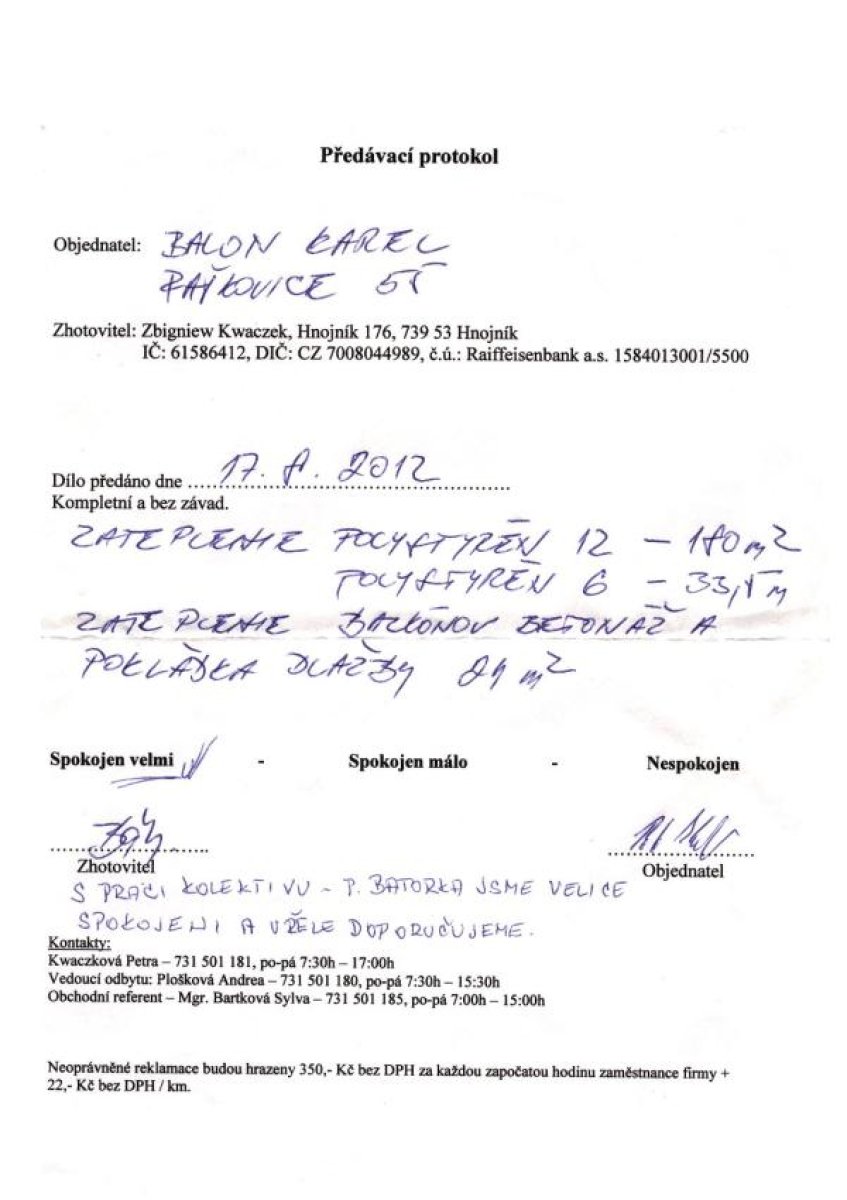 Předávací protokol
Objednatel: BALON KAREL
Zhotovitel: Zbigniew Kwaczek, Hnojník 176, 739 53 Hnojník
IČ: 61586412, DIČ: CZ 7008044989, č.ú.: Raiffeisenbank a.s. 1584013001/5500
Dílo předáno dne 17. 8. 2012
Kompletní a bez závad.
ZATEPLENIE POLYSTYRÉN 12 – 180 m2
POLYSTYRÉN 6 – m
ZATEPLENIE BALKÓNOV BETONÁŽ A
POKLÁDKA DLAŽBY m2
Spokojen velmi - Spokojen málo - Nespokojen
Zhotovitel Objednatel
S PRACÍ KOLEKTIVU – P. BATORKA JSME VELICE
SPOKOJENI A VŘELE DOPORUČUJEME.
Kontakty:
Kwaczková Petra – 731 501 181, po-pá 7:30h – 17:00h
Vedoucí odbytu: Plošková Andrea – 731 501 180, po-pá 7:30h – 15:30h
Obchodní referent – Mgr. Bartková Sylva – 731 501 185, po-pá 7:00h – 15:00h
Neoprávněné reklamace budou hrazeny 350,- Kč bez DPH za každou započatou hodinu zaměstnance firmy +
22,- Kč bez DPH / km.